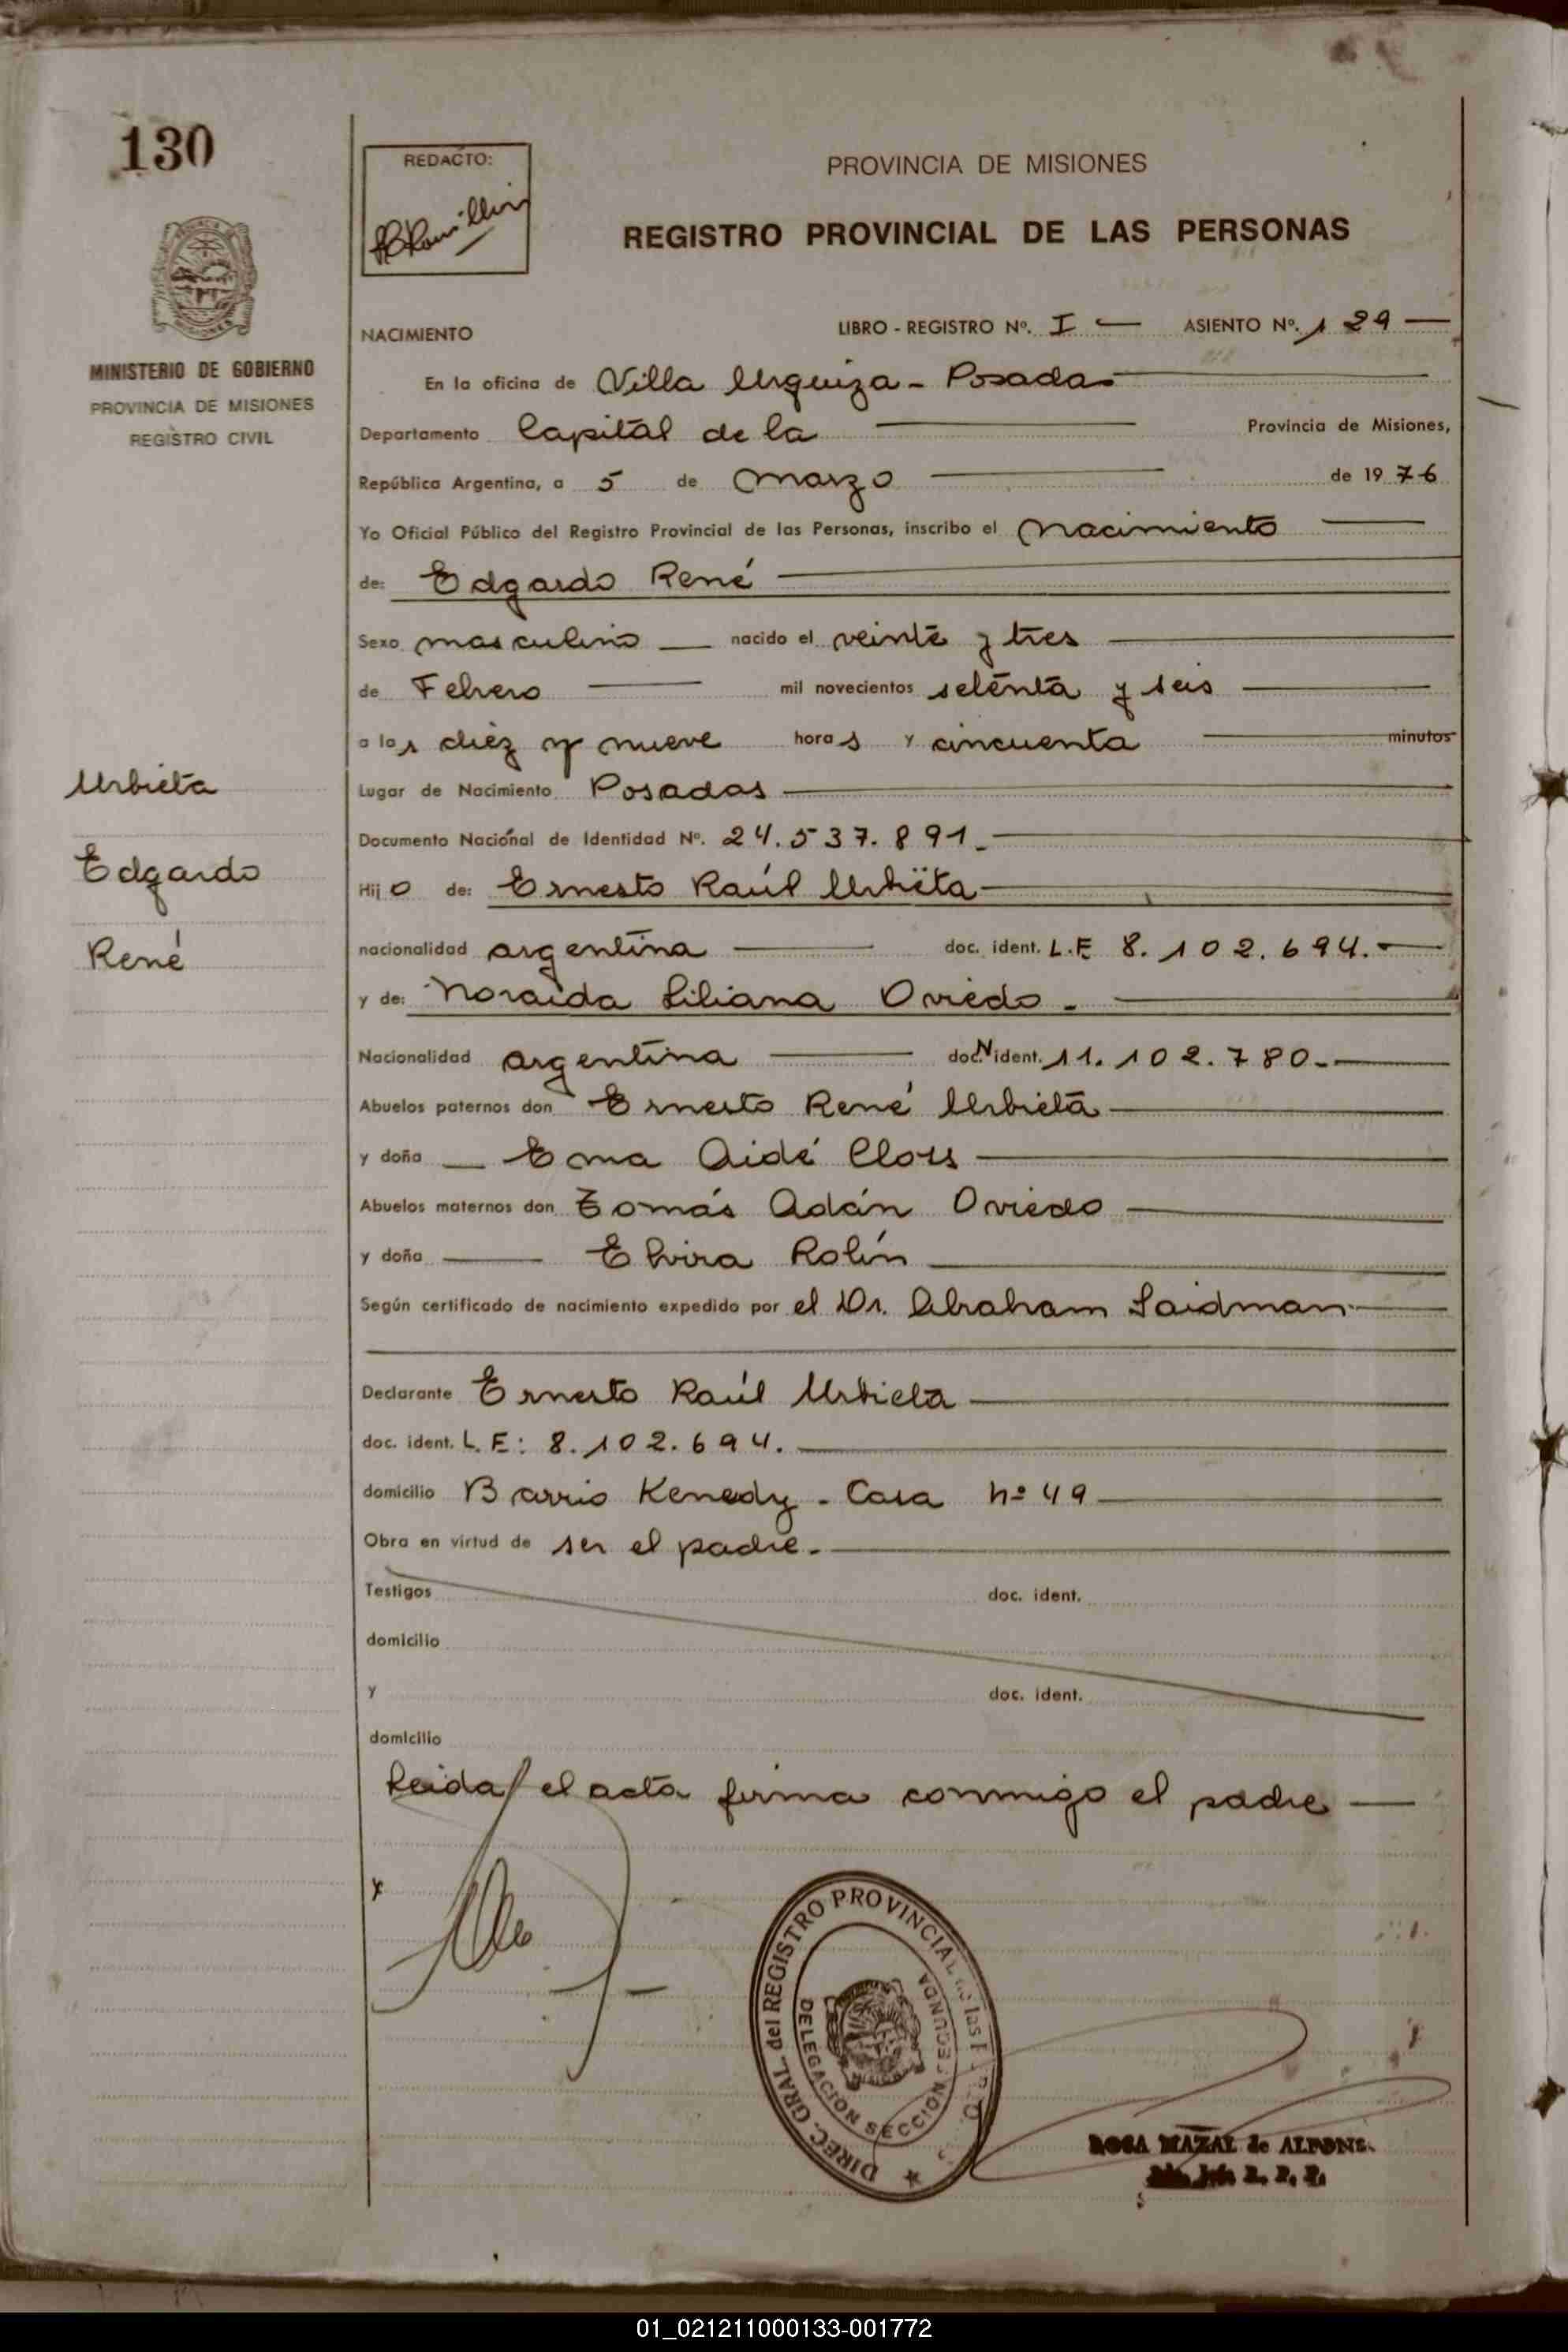 130
MINISTERIO DE GOBIERNO
PROVINCIA DE MISIONES
REGISTRO CIVIL
Urbieta
Edgardo
René
REDACTO:
PROVINCIA DE MISIONES
REGISTRO PROVINCIAL DE LAS PERSONAS
NACIMIENTO LIBRO - REGISTRO Nº. I — ASIENTO Nº. 129 —
En la oficina de Villa Urquiza - Posadas
Departamento Capital de la Provincia de Misiones,
República Argentina, a 5 de marzo de 1976
Yo Oficial Público del Registro Provincial de las Personas, inscribo el nacimiento
de: Edgardo René
Sexo masculino — nacido el veinte y tres
de Febrero — mil novecientos setenta y seis
a las diez y nueve horas y cincuenta minutos
Lugar de Nacimiento Posadas
Documento Nacional de Identidad Nº. 24.537.891.
Hijo de: Ernesto Raúl Urbieta
nacionalidad argentina doc. ident. L.E 8.102.694.
y de: Noraida Liliana Oviedo.
Nacionalidad argentina doc. N ident. 11.102.780.
Abuelos paternos don Ernesto René Urbieta
y doña — Ema Aidé Clots
Abuelos maternos don Tomás Adán Oviedo
y doña — Elvira Rolín
Según certificado de nacimiento expedido por el Dr. Abraham Saidman
Declarante Ernesto Raúl Urbieta
doc. ident. L.E: 8.102.694.
domicilio Barrio Kenedy - Casa nº 49
Obra en virtud de ser el padre.
Testigos doc. ident.
domicilio
y doc. ident.
domicilio
Leida el acta firma conmigo el padre —
x
DIREC. GRAL. del REGISTRO PROVINCIAL de las
DELEGACION SECCION SEGUNDA
ROSA MAZAL de ALFONS.
01_021211000133-001772